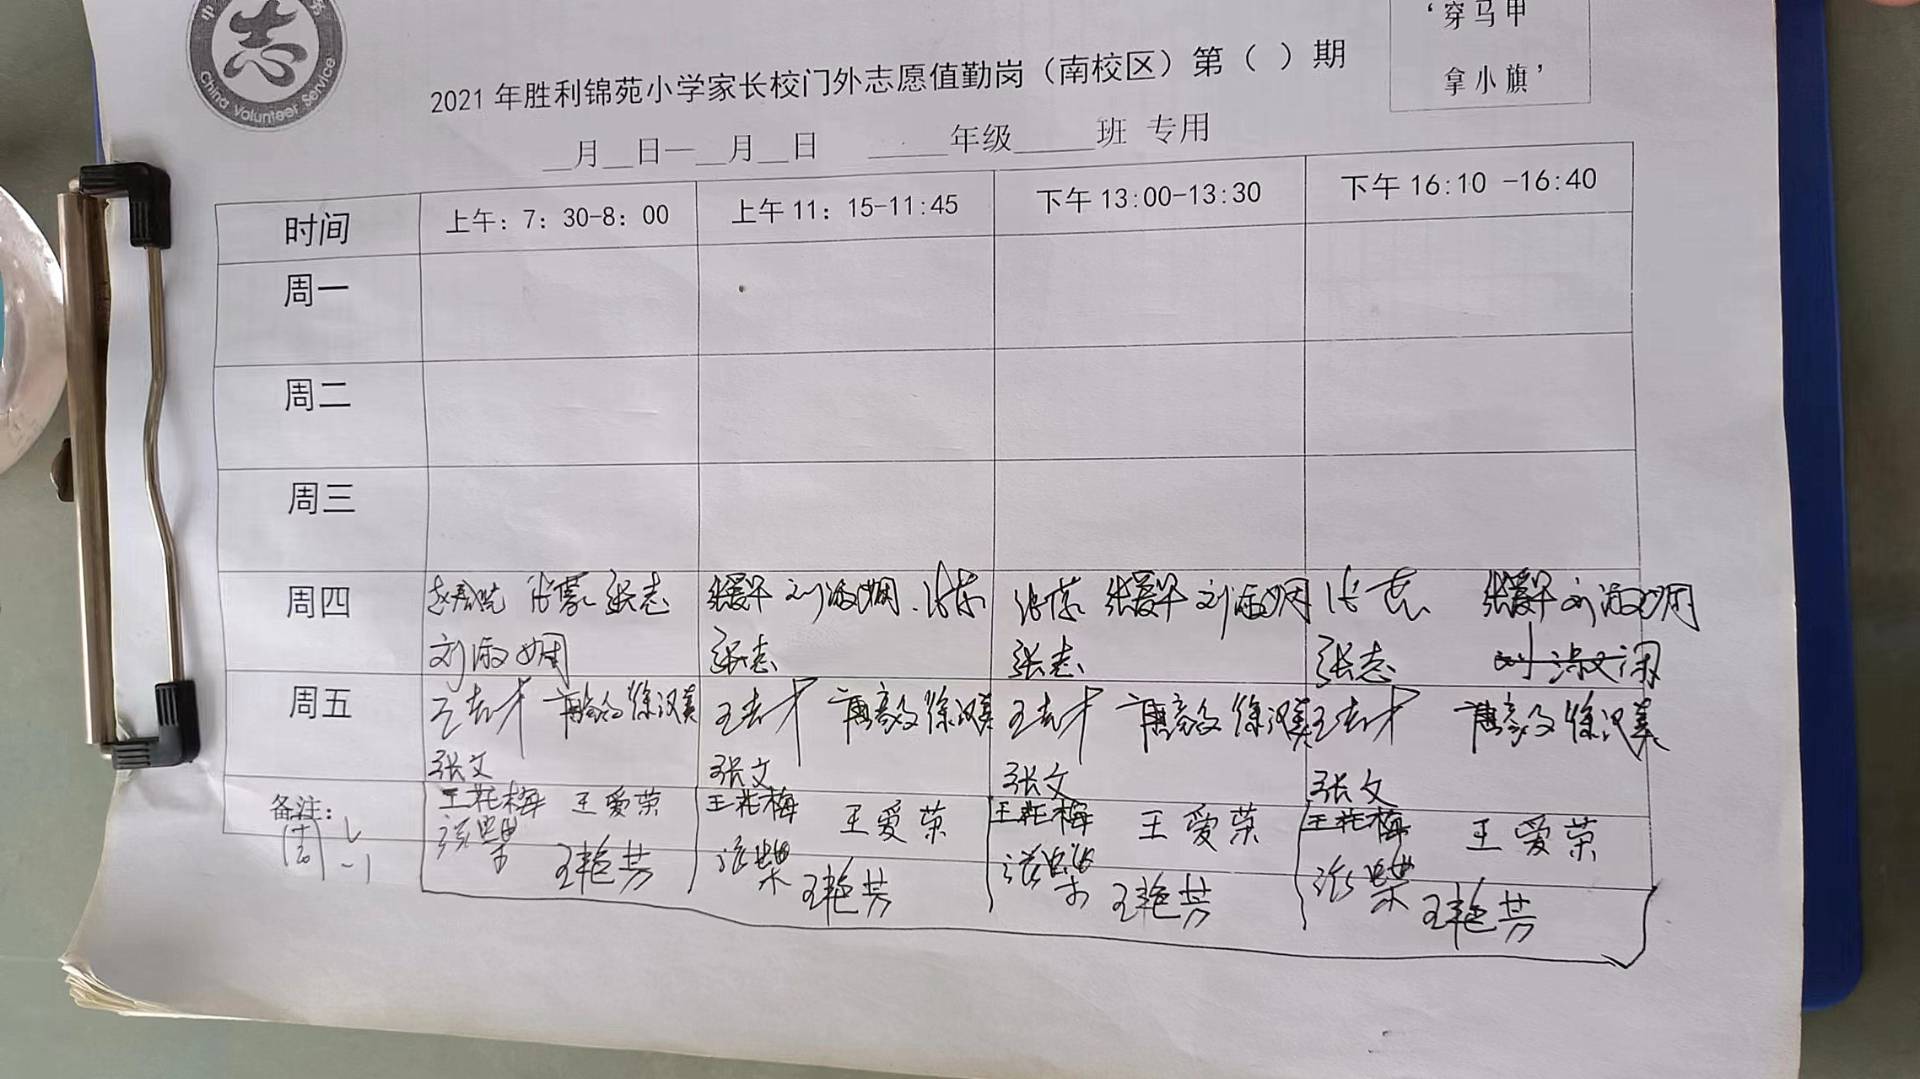 志
China Volunteer Service
'穿马甲
拿小旗'
2021年胜利锦苑小学家长校门外志愿值勤岗（南校区）第（ ）期
__月__日—__月__日 _____年级_____班 专用
时间 上午：7：30-8：00 上午11：15-11:45 下午13:00-13:30 下午16:10 -16:40
周一
周二
周三
周四 张志 张爱华 刘淑娴 张爱华 刘淑娴 张爱华 刘淑娴
刘淑娴 张志 张志 张志
周五 王志才 徐汉美 王志才 徐汉美 王志才 徐汉美 王志才 徐汉美
张文 张文 张文 张文
备注： 王花梅 王爱荣 王花梅 王爱荣 王花梅 王爱荣 王花梅 王爱荣
王艳芳 王艳芳 王艳芳 王艳芳